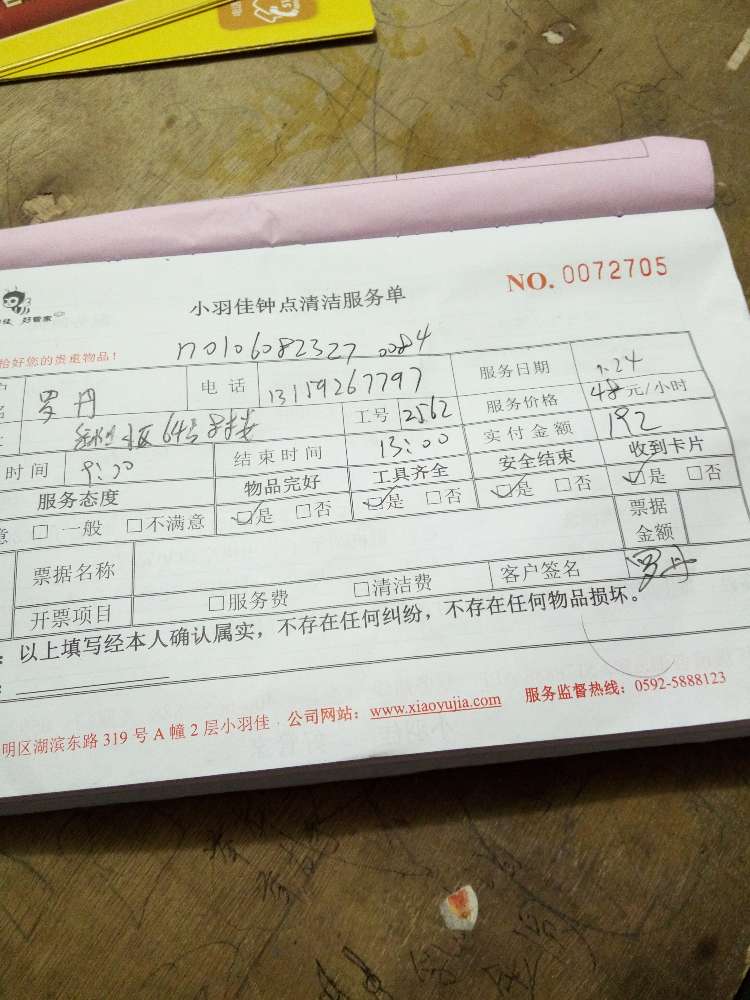 小羽佳钟点清洁服务单 NO. 0072705
佳 好管家
恰好您的贵重物品!
n01060823270084
名 罗丹 电话 13159267797 服务日期 24
小区64号 工号 2562 服务价格 48元/小时
时间 9:00 结束时间 13:00 实付金额 192
服务态度 物品完好 工具齐全 安全结束 收到卡片
意 □一般 □不满意 ☑是 □否 ☑是 □否 ☑是 □否 ☑是 □否
票据名称 票据金额
开票项目 □服务费 □清洁费 客户签名 罗丹
:以上填写经本人确认属实,不存在任何纠纷,不存在任何物品损坏。
:
明区湖滨东路 319 号 A 幢 2 层小羽佳 公司网站:www.xiaoyujia.com 服务监督热线:0592-5888123